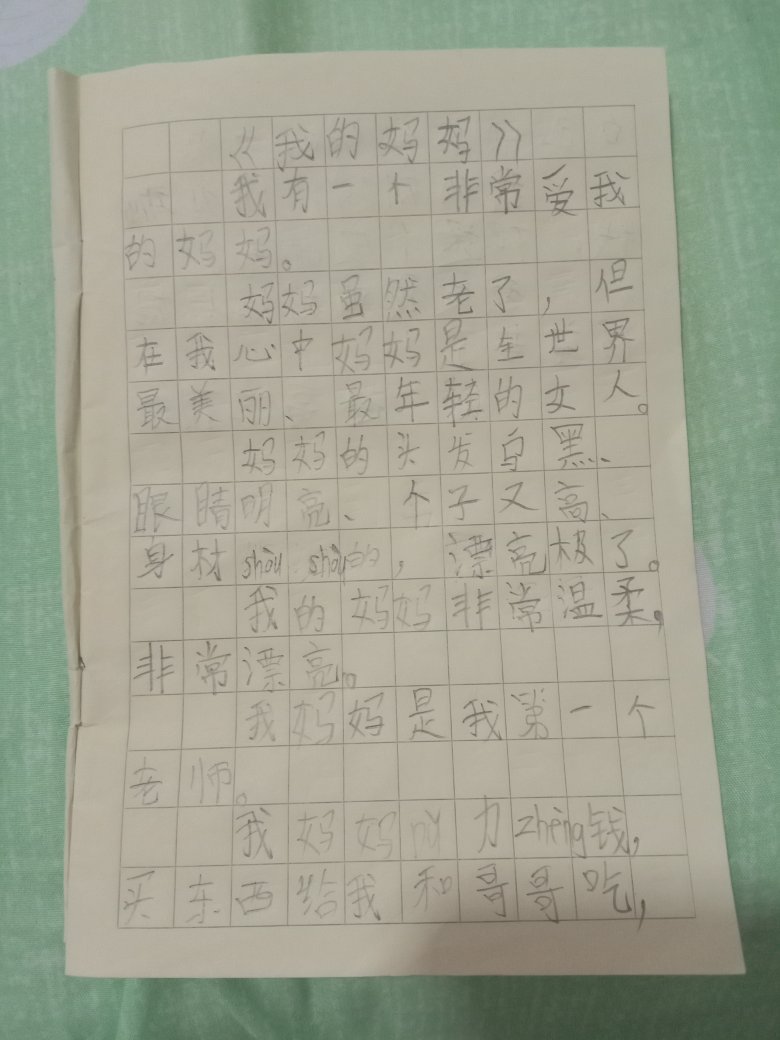 《我的妈妈》
我有一个非常爱我
的妈妈。
妈妈虽然老了，但
在我心中妈妈是全世界
最美丽、最年轻的女人。
妈妈的头发乌黑、
眼睛明亮、个子又高、
身材shòu shòu的，漂亮极了。
我的妈妈非常温柔，
非常漂亮。
我妈妈是我第一个
老师。
我妈妈 力zhèng钱，
买东西给我和哥哥吃，